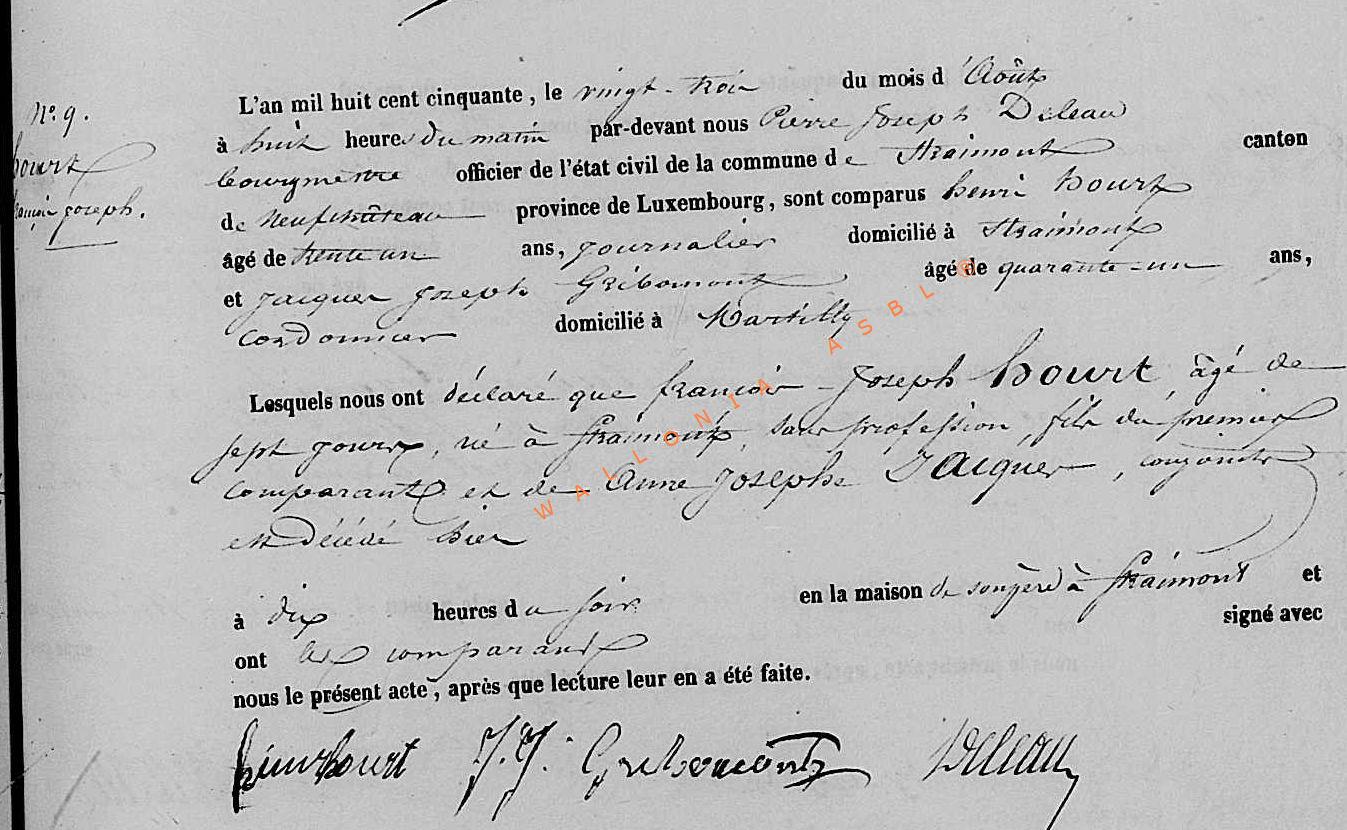 N° 9.
hourt
françois joseph.
L'an mil huit cent cinquante, le vingt-trois du mois d'Août
à huit heures du matin par-devant nous Pierre Joseph Deleau
bourgmestre officier de l'état civil de la commune de Straimont canton
de Neufchâteau province de Luxembourg, sont comparus henri hourt
âgé de trente un ans, journalier domicilié à Straimont
et Jacques Joseph Gribomont âgé de quarante-un ans,
cordonnier domicilié à Martilly
Lesquels nous ont déclaré que françois-Joseph hourt âgé de
sept jours, né à Straimont, sans profession, fils du premier
comparant et de Anne Josephe Jacques, conjoints
est décédé hier
à dix heures du soir en la maison de son père à Straimont et
ont les comparants signé avec
nous le présent acte, après que lecture leur en a été faite.
henri hourt J. J. Gribomont Deleau
WALLONIA ASBL ®